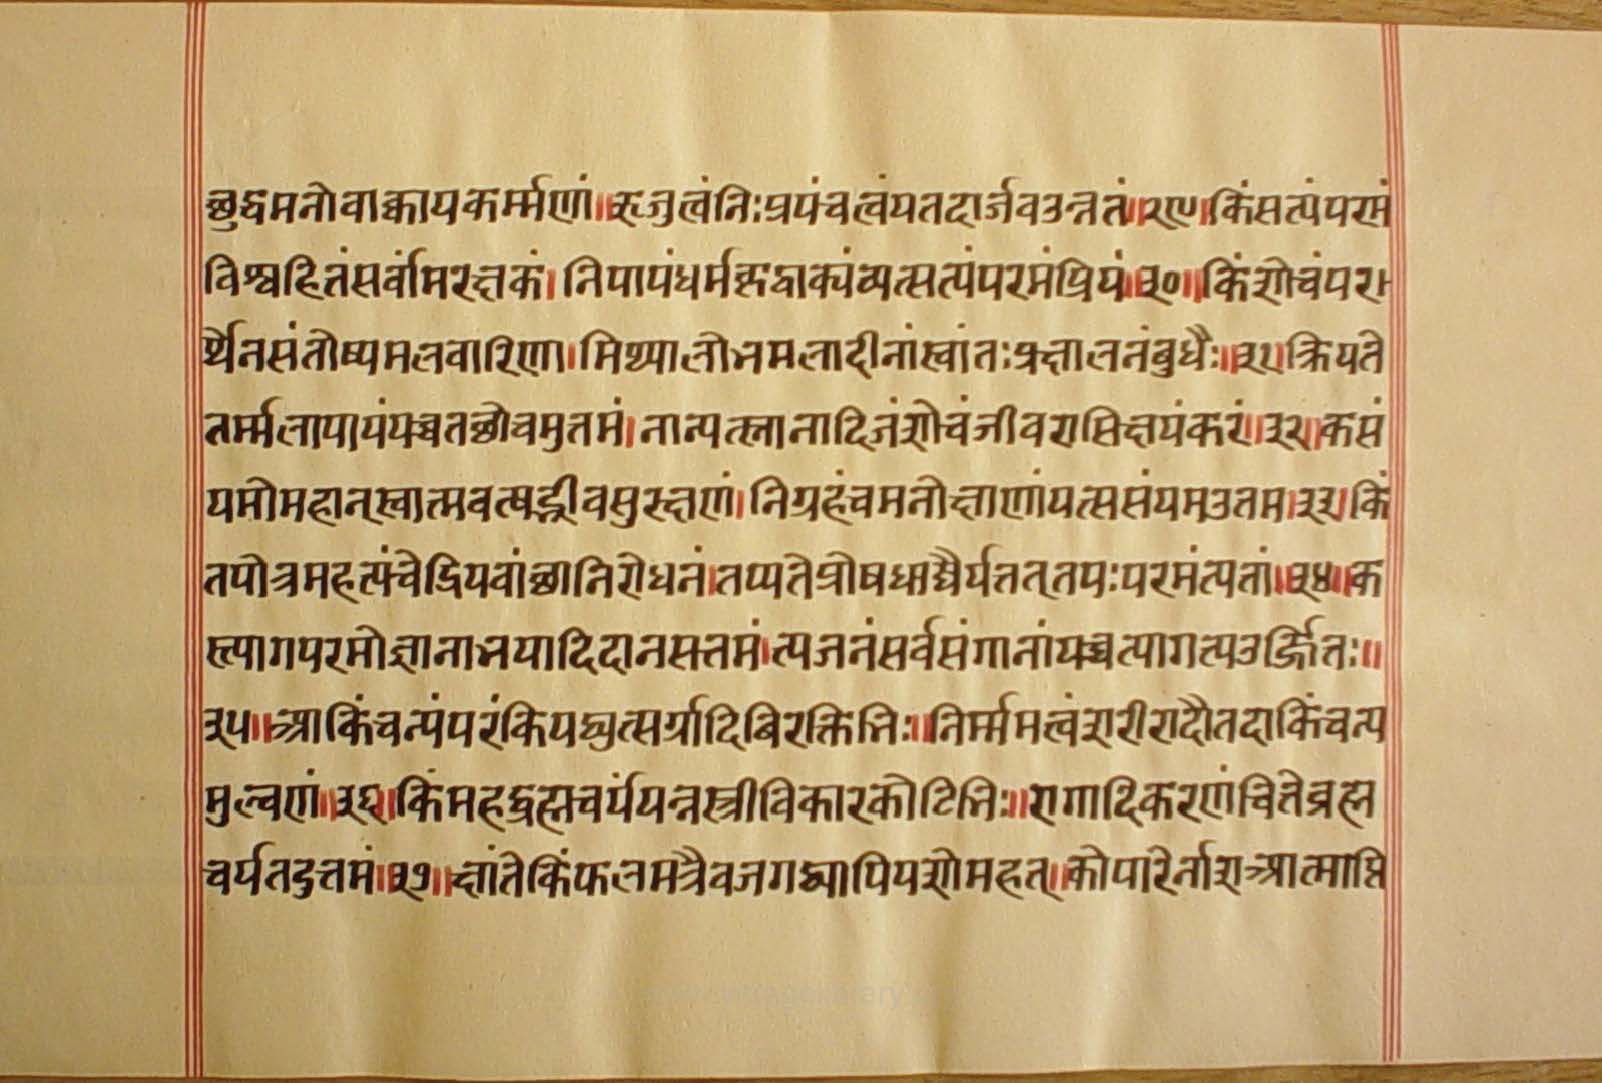 छुद्धमनोवाक्कायकर्म्मणां॥ऋजुत्वंनिःप्रपंचत्वंयतदार्जवउन्नतं॥२९॥किंसत्यंपरमं
विश्वहितंसर्वांमरक्षकं।निपापंधर्मकृद्वाक्यंव्यत्सत्यंपरमंप्रियं॥३०॥किंशोचंपरा
र्थैनसंतोष्यमलवारिणा।मिथ्यालोभमलादीनांस्वांतःप्रक्षालनंबुधैः॥३१॥क्रियते
तर्म्मलापायंयच्चतछोचमुत्तमं।नात्यत्स्नानादिजंशोचंजीवराशिक्षयंकरं॥३२॥कसं
यमोमहान्स्वात्मवत्षड्जीवसुरक्षणं।निग्रहंचमनोक्षाणांयत्ससंयमउतम॥३३॥किं
तपोत्रमहत्पंचेद्रियवांछानिरोधनं।तप्यतेत्रोषधाद्यैर्यत्तत्तपःपरमंत्यतां॥३४॥क
स्त्यागपरमोज्ञानाभयादिदानसत्तमं।त्यजनंसर्वसंगानांयच्चत्यागत्यउर्ज्जितः॥
३५॥आकिंचत्यंपरंकियद्युत्सर्गादिबिरक्तिभिः॥निर्म्ममत्वंशरीरादौतदाकिंचत्य
मुल्वणं॥३६॥किंमहद्ब्रह्मचर्यंयन्नस्त्रीविकारकोटिभिः॥रागादिकरणंचितेब्रह्म
चर्यतदुत्तमं॥३७॥क्षांतेकिंफलमत्रैवजगद्यापियशोमहत्॥कोपारेर्नाशआत्माप्ति